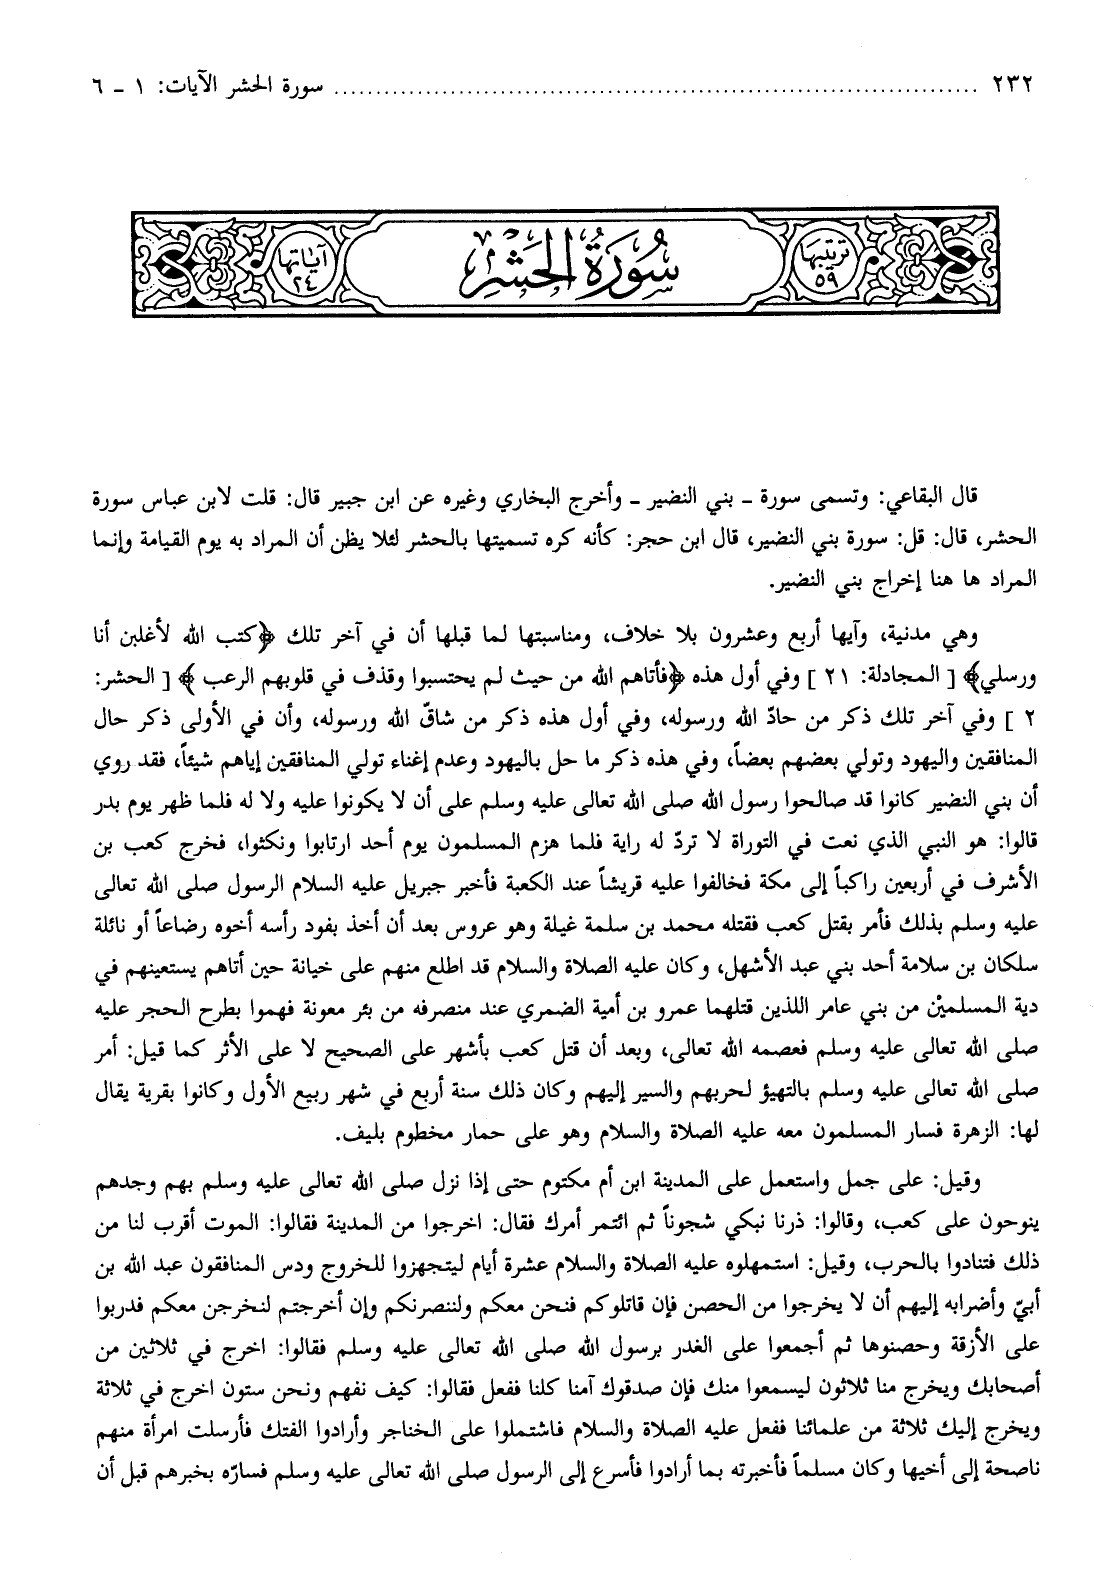 ٢٣٢ ........................................................................ سورة الحشر الآيات: ١ ـ ٦
ترتيبها ٥٩
سُورَةُ الحَشْرِ
آياتها ٢٤
قال البقاعي: وتسمى سورة ـ بني النضير ـ وأخرج البخاري وغيره عن ابن جبير قال: قلت لابن عباس سورة
الحشر، قال: قل: سورة بني النضير، قال ابن حجر: كأنه كره تسميتها بالحشر لئلا يظن أن المراد به يوم القيامة وإنما
المراد ها هنا إخراج بني النضير.
وهي مدنية، وآيها أربع وعشرون بلا خلاف، ومناسبتها لما قبلها أن في آخر تلك ﴿كتب الله لأغلبن أنا
ورسلي﴾ [ المجادلة: ٢١ ] وفي أول هذه ﴿فأتاهم الله من حيث لم يحتسبوا وقذف في قلوبهم الرعب ﴾ [ الحشر:
٢ ] وفي آخر تلك ذكر من حادّ الله ورسوله، وفي أول هذه ذكر من شاقّ الله ورسوله، وأن في الأولى ذكر حال
المنافقين واليهود وتولي بعضهم بعضاً، وفي هذه ذكر ما حل باليهود وعدم إغناء تولي المنافقين إياهم شيئاً، فقد روي
أن بني النضير كانوا قد صالحوا رسول الله صلى الله تعالى عليه وسلم على أن لا يكونوا عليه ولا له فلما ظهر يوم بدر
قالوا: هو النبي الذي نعت في التوراة لا تردّ له راية فلما هزم المسلمون يوم أحد ارتابوا ونكثوا، فخرج كعب بن
الأشرف في أربعين راكباً إلى مكة فخالفوا عليه قريشاً عند الكعبة فأخبر جبريل عليه السلام الرسول صلى الله تعالى
عليه وسلم بذلك فأمر بقتل كعب فقتله محمد بن سلمة غيلة وهو عروس بعد أن أخذ بفود رأسه أخوه رضاعاً أو نائلة
سلكان بن سلامة أحد بني عبد الأشهل، وكان عليه الصلاة والسلام قد اطلع منهم على خيانة حين أتاهم يستعينهم في
دية المسلميْن من بني عامر اللذين قتلهما عمرو بن أمية الضمري عند منصرفه من بئر معونة فهموا بطرح الحجر عليه
صلى الله تعالى عليه وسلم فعصمه الله تعالى، وبعد أن قتل كعب بأشهر على الصحيح لا على الأثر كما قيل: أمر
صلى الله تعالى عليه وسلم بالتهيؤ لحربهم والسير إليهم وكان ذلك سنة أربع في شهر ربيع الأول وكانوا بقرية يقال
لها: الزهرة فسار المسلمون معه عليه الصلاة والسلام وهو على حمار مخطوم بليف.
وقيل: على جمل واستعمل على المدينة ابن أم مكتوم حتى إذا نزل صلى الله تعالى عليه وسلم بهم وجدهم
ينوحون على كعب، وقالوا: ذرنا نبكي شجوناً ثم ائتمر أمرك فقال: اخرجوا من المدينة فقالوا: الموت أقرب لنا من
ذلك فتنادوا بالحرب، وقيل: استمهلوه عليه الصلاة والسلام عشرة أيام ليتجهزوا للخروج ودس المنافقون عبد الله بن
أبيّ وأضرابه إليهم أن لا يخرجوا من الحصن فإن قاتلوكم فنحن معكم ولننصرنكم وإن أخرجتم لنخرجن معكم فدربوا
على الأزقة وحصنوها ثم أجمعوا على الغدر برسول الله صلى الله تعالى عليه وسلم فقالوا: اخرج في ثلاثين من
أصحابك ويخرج منا ثلاثون ليسمعوا منك فإن صدقوك آمنا كلنا ففعل فقالوا: كيف نفهم ونحن ستون اخرج في ثلاثة
ويخرج إليك ثلاثة من علمائنا ففعل عليه الصلاة والسلام فاشتملوا على الخناجر وأرادوا الفتك فأرسلت امرأة منهم
ناصحة إلى أخيها وكان مسلماً فأخبرته بما أرادوا فأسرع إلى الرسول صلى الله تعالى عليه وسلم فسارّه بخبرهم قبل أن